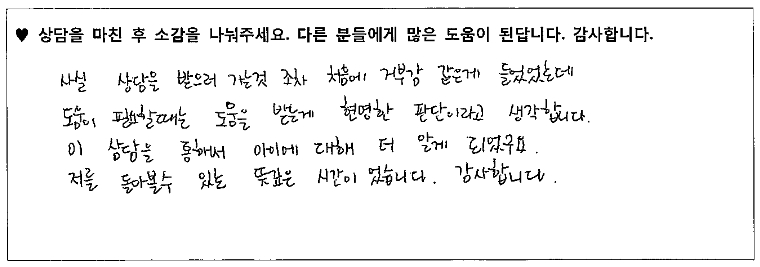 ♥ 상담을 마친 후 소감을 나눠주세요. 다른 분들에게 많은 도움이 된답니다. 감사합니다.
사실 상담을 받으러 가는것 조차 처음에 거부감 같은게 들었었는데
도움이 필요할때는 도움을 받는게 현명한 판단이라고 생각합니다.
이 상담을 통해서 아이에 대해 더 알게 되었구요.
저를 돌아볼수 있는 뜻깊은 시간이 었습니다. 감사합니다.